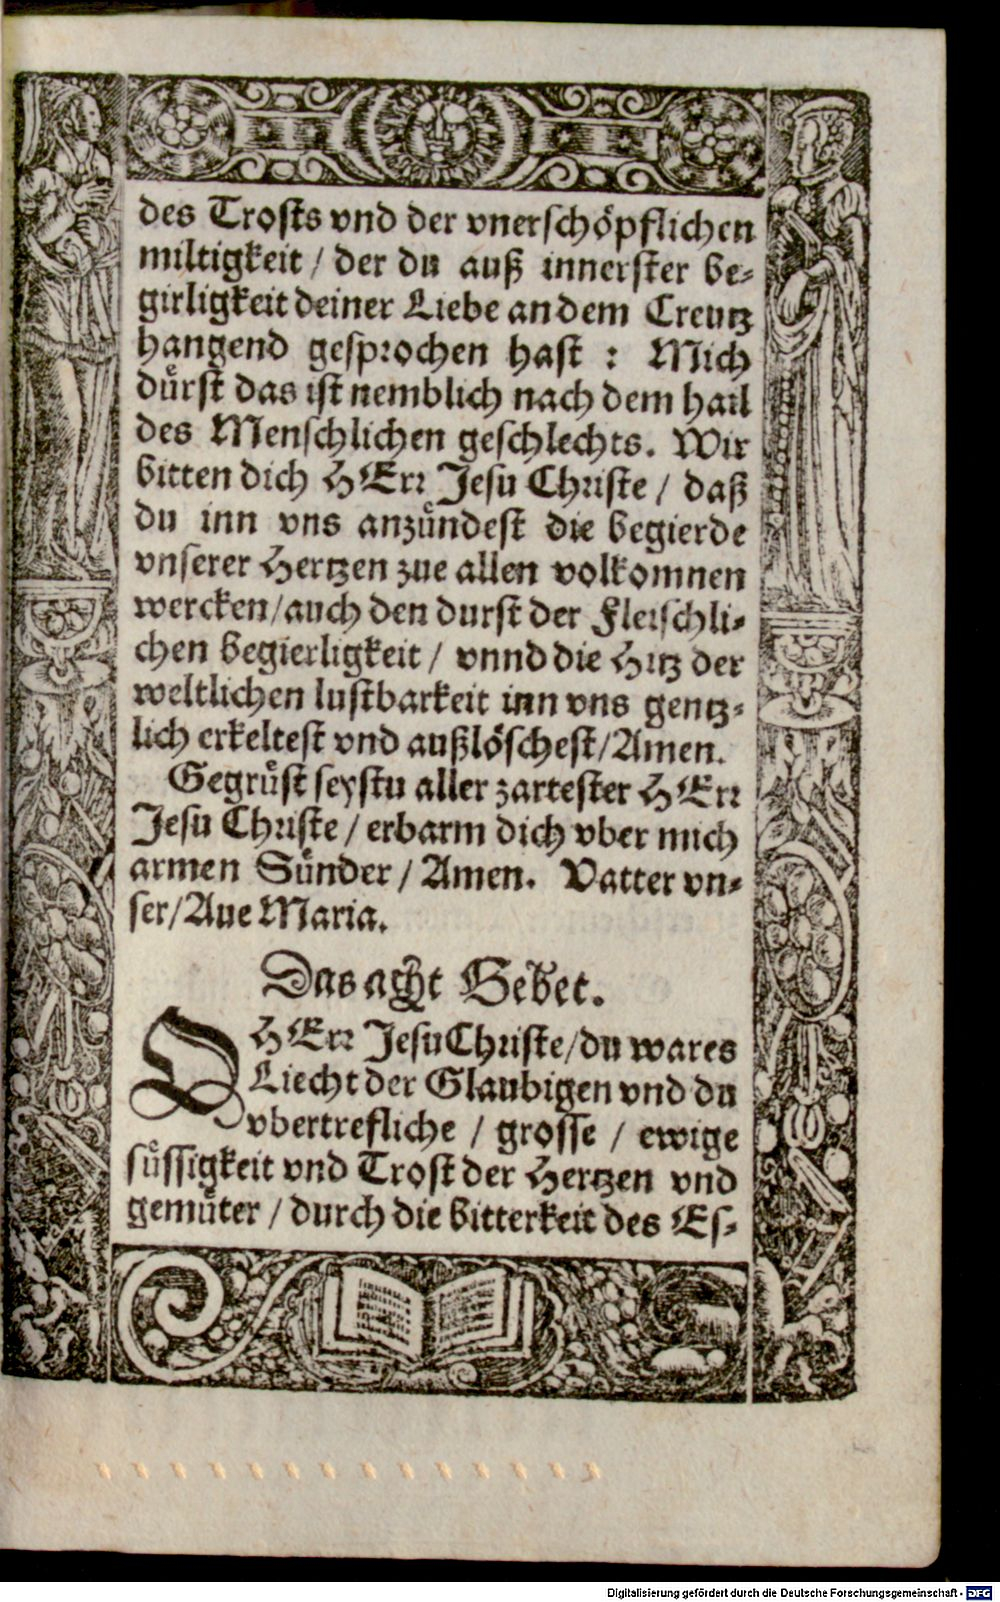 des Trosts vnd der vnerschöpflichen
miltigkeit / der du auß innerster be-
girligkeit deiner Liebe an dem Creutz
hangend gesprochen hast : Mich
dürst das ist nemblich nach dem hail
des Menschlichen geschlechts. Wir
bitten dich HErr Jesu Christe / daß
du inn vns anzündest die begierde
vnserer Hertzen zue allen volkomnen
wercken / auch den durst der Fleischli-
chen begierligkeit / vnnd die Hitz der
weltlichen lustbarkeit inn vns gentz-
lich erkeltest vnd außlöschest / Amen.
Gegrüst seystu aller zartester HErr
Jesu Christe / erbarm dich vber mich
armen Sünder / Amen. Vatter vn-
ser / Aue Maria.
Das acht Gebet.
O HErr Jesu Christe / du wares
Liecht der Glaubigen vnd du
vbertrefliche / grosse / ewige
süssigkeit vnd Trost der Hertzen vnd
gemüter / durch die bitterkeit des Es-
Digitalisierung gefördert durch die Deutsche Forschungsgemeinschaft - DFG